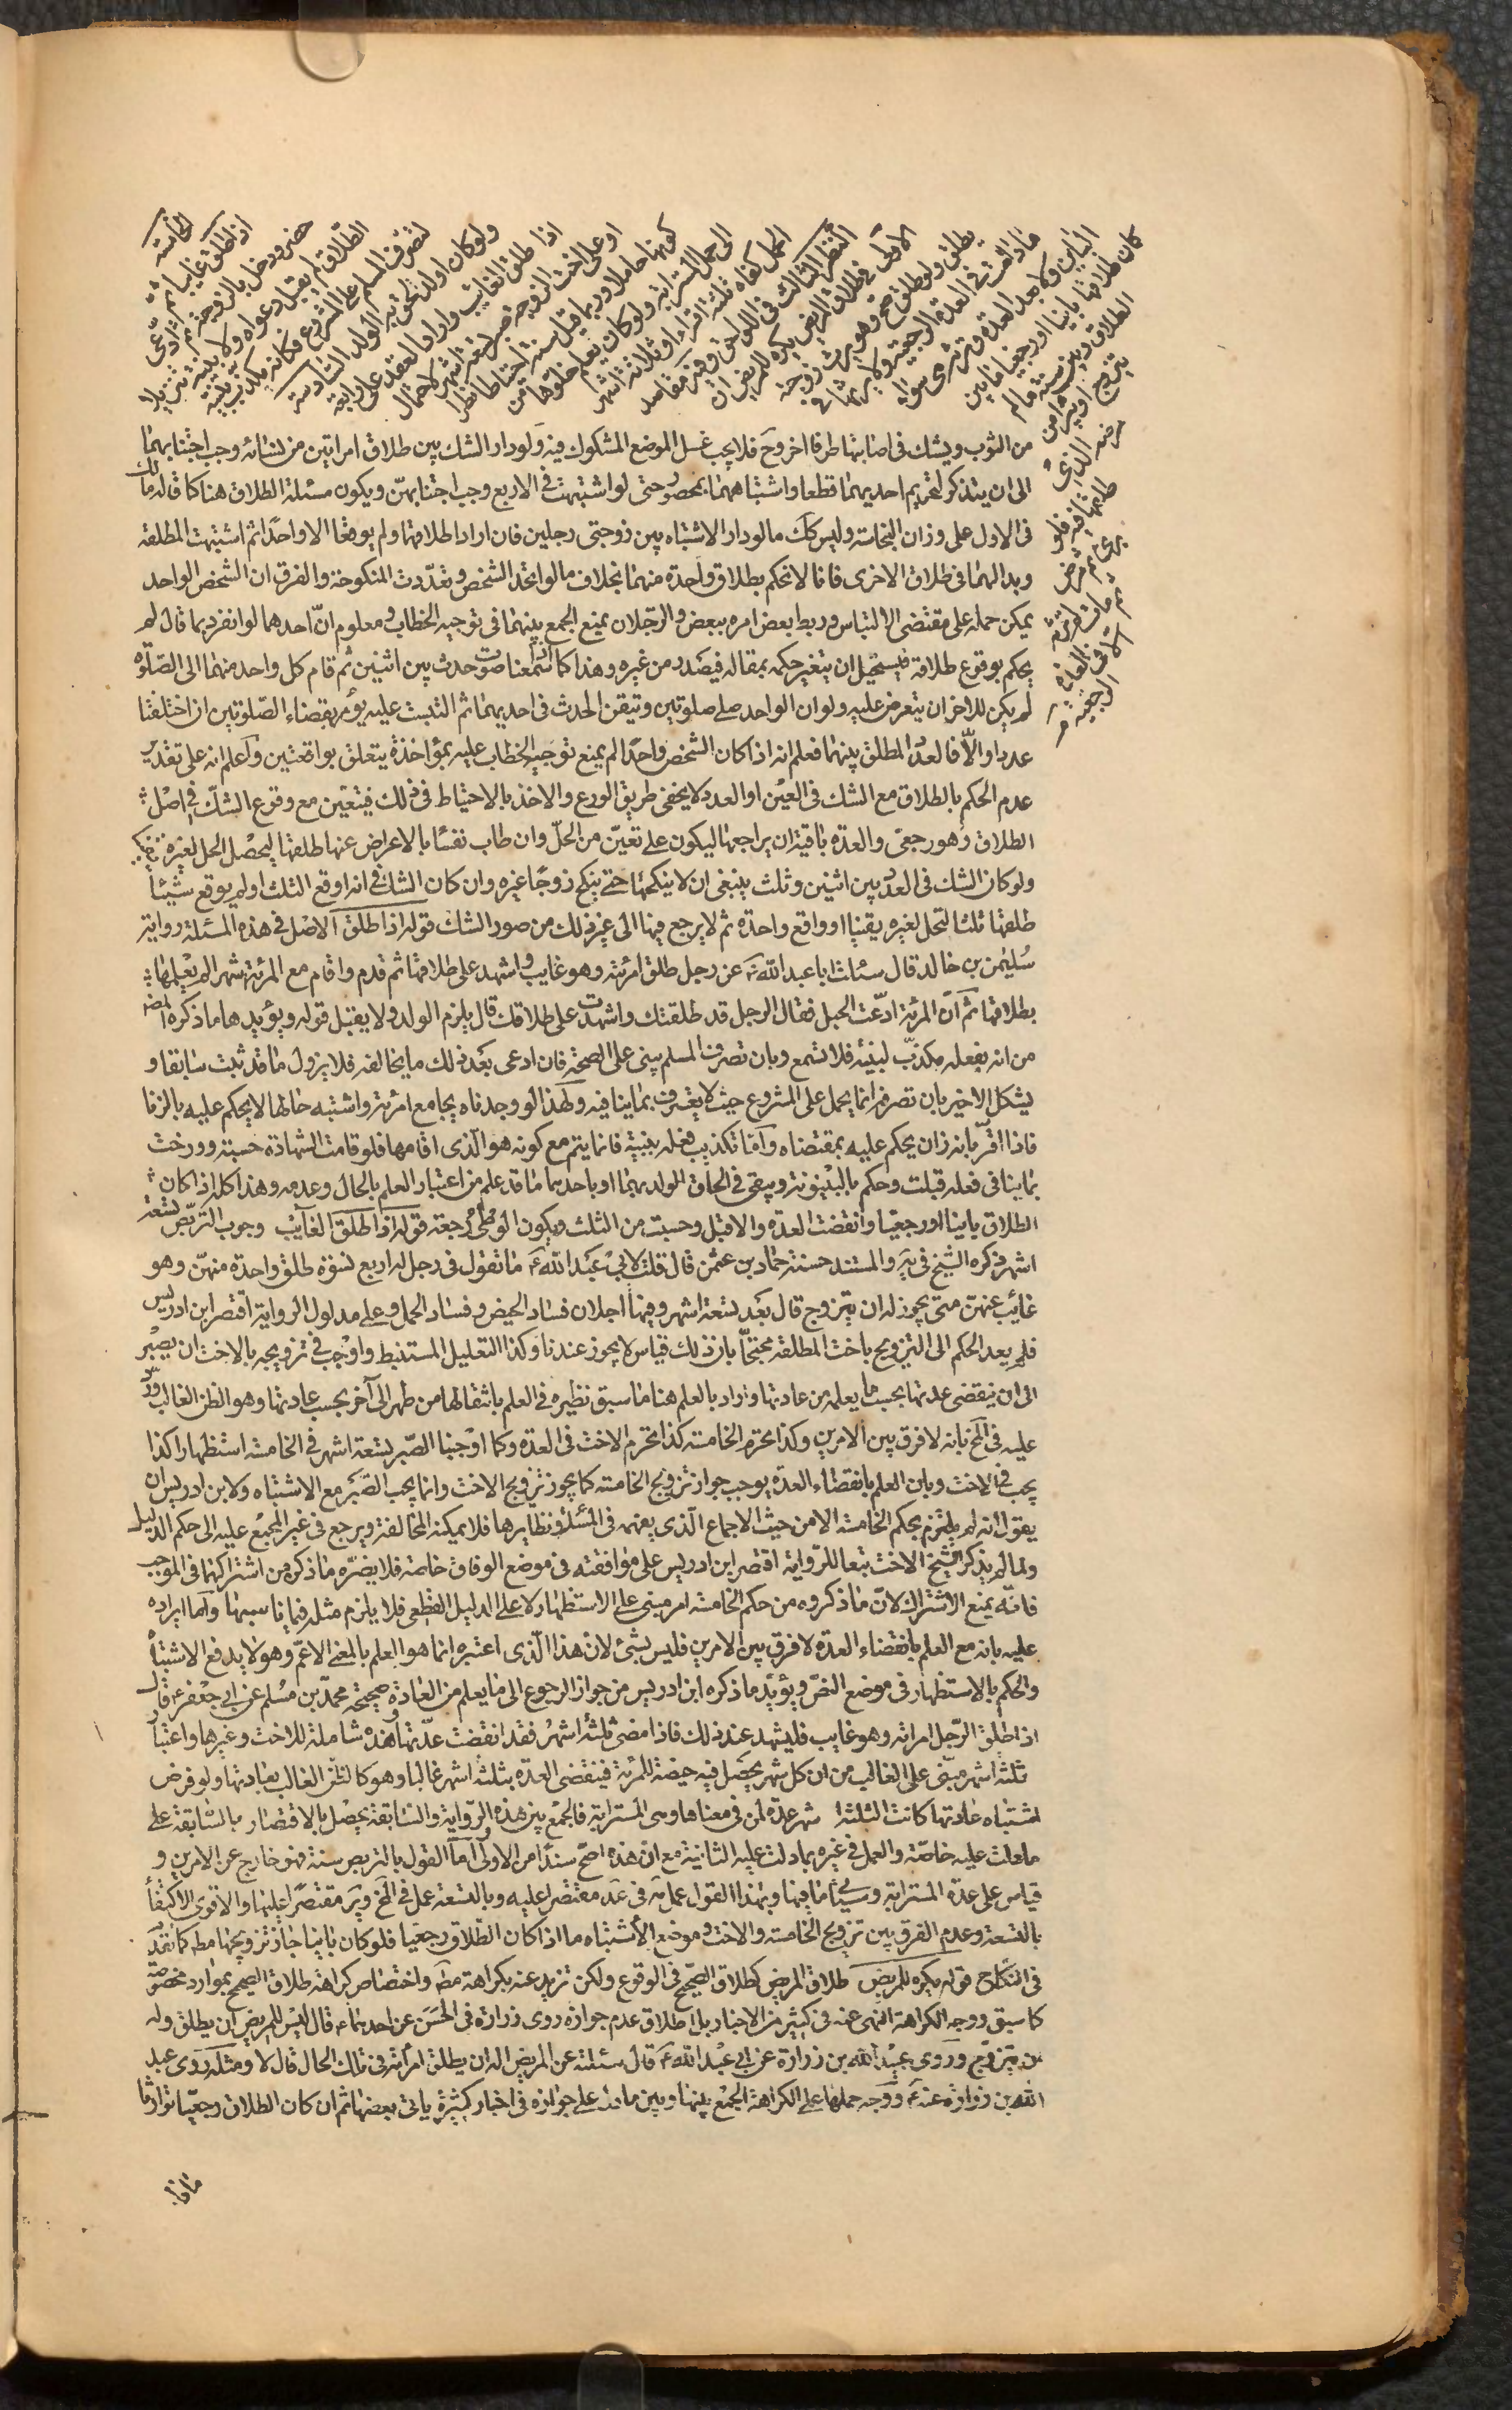 الخامسة
اذا طلق غايبا ثم
حضر ودخل بالزوجة ثم ادّعى
الطّلاق لم يقبل دعواه ولا بينته تنزيلا
لتصرف المسلم على المشروع فكانه مكذب لبينته
ولو كان اولد لحق به الولد السّادسة
اذا طلق الغائب واراد العقد على رابعة
او على اخت الزوجة صبر تسعة اشهر لاحتمال
كونها حاملا وربما قيل سنة احتياطا نظرا
الى حمل المسترابة ولو كان يعلم خلوها من
الحمل كفاه ثلثة اقراء او ثلاثة اشهر
النظر الثالث في اللواحق وفيه مقاصد
الاوّل في طلاق المريض يكره للمريض ان
يطلق ولو طلق صح وهو يرث زوجته
ما دامت في العدة الرجعية ولا يرثها في
الباين ولا بعد العدة وترثه هي سواء
كان طلاقها باينا او رجعيا ما بين
الطلاق وبين سنة ما لم
يتزوج او يبرء من
مرضه الذي
طلقها فيه فلو
برئ ثم مرض
ثم مات لم ترثه
الا في العدة
الرجعية
من الثوب ويشك في اصابتها طرفا اخر وح فلا يجب غسل الموضع المشكوك فيه ولو دار الشك بين طلاق امراتين من نسائه وجب اجتنابهما
الى ان يتذكر لتحريم احديهما قطعا واشتباههما بمحصور حتى لو اشتبهت في الاربع وجب اجتنابهنّ ويكون مسئلة الطلاق هنا كما قاله مالك
في الاول على وزان النجاسة وليس كك ما لو دار الاشتباه بين زوجتي رجلين فان ارادا طلاقهما ولم يوقعا الا واحدا ثم اشتبهت المطلقه
وبدا لهما في طلاق الاخرى فانا لا نحكم بطلاق واحدة منهما بخلاف ما لو اتحد الشخص وتعدّدت المنكوحة والفرق ان الشخص الواحد
يمكن حمله على مقتضى الالتباس وربط بعض امره ببعض والرّجلان يمنع الجمع بينهما في توجيه الخطاب ومعلوم انّ احدهما لو انفرد بما قال لم
يحكم بوقوع طلاقه فيستحيل ان يتغير حكمه بمقاله فيصدر من غيره وهذا كما انّا سمعنا صوت حدث بين اثنين ثم قام كل واحد منهما الى الصّلوه
لم يكن للاخر ان يتعرض عليه ولو ان الواحد صلى صلوتين وتيقن الحدث في احديهما ثم التبست عليه يؤمر بقضاء الصّلوتين ان اختلفتا
عددا والّا فالعدد المطلق بينهما فعلم انه اذا كان الشخص واحدا لم يمنع توجيه الخطاب عليه بمؤاخذة يتعلق بواقعتين واعلم انه على تقدير
عدم الحكم بالطلاق مع الشك في العين او العدد لا يخفى طريق الورع والاخذ بالاحتياط في ذلك فيتعيّن مع وقوع الشكّ في اصل
الطلاق وهو رجعي والعدّه باقية ان يراجعها ليكون على تعيّن من الحلّ وان طاب نفسا بالاعراض عنها طلقها ليحصل الحل لغيره
ولو كان الشك في العدد بين اثنين وثلث ينبغي ان لا ينكحها حتى ينكح زوجا غيره وان كان الشك في انه اوقع الثلث او لم يوقع شيئا
طلقها ثلثا لتحل لغيره يقينا او واقع واحدة ثم لا يرجع فيها الى غير ذلك من صور الشك قوله اذا طلق الاصل في هذه المسئلة رواية
سليمن بن خالد قال سئلت ابا عبد الله عن رجل طلق امرئته وهو غايب واشهد على طلاقها ثم قدم واقام مع المرئة شهرا لم يعلمها
بطلاقها ثم ان المرئة ادّعت الحبل فقال الرجل قد طلقتك واشهدت على طلاقك قال يلزم الولد ولا يقبل قوله ويؤيدها ما ذكره المصنف
من انه بفعله مكذّب لبينته فلا تسمع وبان تصرف المسلم يبنى على الصحة فان ادعى بعد ذلك ما يخالفه فلا يزول ما قد ثبت سابقا و
يشكل الاخير بان تصرفه انما يحمل على المشروع حيث لا يعترف بما ينافيه ولهذا لو وجدناه يجامع امرئة واشتبه حالها لا يحكم عليه بالزنا
فاذا اقرّ بانه زان يحكم عليه بمقتضاه وامّا تكذيب فعله ببينته فانما يتم مع كونه هو الّذى اقامها فلو قامت الشهادة حسبة وورخت
بما ينافي فعله قبلت وحكم بالبينونة ويبقى في الحاق الولد بهما او باحدهما ما قد علم من اعتبار العلم بالحال وعدمه وهذا كله اذا كان
الطلاق باينا او رجعيا وانقضت العدّه والا قبل وحسبت من الثلث ويكون الوطى رجعة قوله اذا طلق الغايب وجوب التربّص تسعة
اشهر ذكره الشيخ في يه والمستند حسنة حماد بن عثمن قال قلت لابي عبد الله ع ما تقول في رجل له اربع نسوة طلق واحدة منهنّ وهو
غائب عنهن متى يجوز له ان يتزوج قال بعد تسعة اشهر وفيها اجلان فساد الحيض وفساد الحمل وعلى مدلول الرواية اقتصر ابن ادريس
فلم يعد الحكم الى التزويج باخت المطلقة محتجّا بان ذلك قياس لا يجوز عندنا وكذا التعليل المستنبط واوجب في تزويجه بالاخت ان يصبر
الى ان ينقضى عدتها بحسب ما يعلمه من عادتها واراد بالعلم هنا ما سبق نظيره في العلم بانتقالها من طهر الى آخر بحسب عادتها وهو الظن الغالب وردّ
عليه في المخ بانه لا فرق بين الامرين وكذا يحرم الخامسة كذا تحرم الاخت في العدّه وكما اوجبنا الصّبر تسعة اشهر في الخامسة استظهارا كذا
يجب في الاخت وبان العلم بانقضاء العدّة يوجب جواز تزويج الخامسة كما يجوز تزويج الاخت وانما يجب الصّبر مع الاشتباه ولابن ادريس ان
يقول انه لم يلتزم بحكم الخامسة الا من حيث الاجماع الّذي يفهمه في المسئلة ونظايرها فلا يمكنه المخالفة ويرجع في غير المجمع عليه الى حكم الدليل
ولما لم يذكر الشيخ الاخت تبعا للرواية اقتصر ابن ادريس على موافقته في موضع الوفاق خاصة فلا يضرّه ما ذكر من اشتراكهما في الموجب
فانّه يمنع الاشتراك لانّ ما ذكروه من حكم الخامسة امر مبني على الاستظهار لا على الدليل القطعى فلا يلزم مثله فيما يناسبها واما ايراده
عليه بانه مع العلم بانقضاء العدّة لا فرق بين الامرين فليس بشئ لان هذا الّذى اعتبره انما هو العلم بالمعنى الاعمّ وهو لا يدفع الاشتباه
والحكم بالاستظهار في موضع النصّ ويؤيّد ما ذكره ابن ادريس من جواز الرجوع الى ما يعلم من العادة صحيحة محمّد بن مسلم عن ابي جعفر ع قال
اذا طلق الرّجل امراته وهو غايب فليشهد عند ذلك فاذا مضى ثلثة اشهر فقد انقضت عدّتها وهذه شاملة للاخت وغيرها واعتبار
ثلثة اشهر مبنى على الغالب من ان كل شهر يحصل فيه حيضة للمرئة فينقضى العدّه بثلثة اشهر غالبا وهو كالظن الغالب بعادتها ولو فرض
اشتباه عادتها كانت الثلثة اشهر عدّة لمن في معناها وهى المسترابة فالجمع بين هذه الرّواية والسّابقة يحصل بالاقتصار بالسّابقة على
ما دلت عليه خاصّة والعمل في غيره بما دلت عليه الثانية مع ان هذه اصحّ سندا من الاولى وامّا القول بالتربص سنة فهو خارج عن الامرين و
قياس على عدّة المسترابة وسيأتي ما فيها وبهذا القول عمل مة في عد مقتصرا عليه وبالتسعة عمل في المخ وير مقتصرا عليها والاقوى الاكتفاء
بالتسعة وعدم الفرق بين تزويج الخامسة والاخت وموضع الاشتباه ما اذا كان الطّلاق رجعيا فلو كان باينا جاز تزويجهما مط كما تقدّم
في النكاح قوله يكره للمريض طلاق المريض كطلاق الصّحيح في الوقوع ولكن تزيد عنه بكراهة مط واختصاص كراهة طلاق الصحيح بموارد مخصوصة
كما سبق ووجه الكراهة النهى عنه في كثير من الاخبار بل اطلاق عدم جوازه روى زرارة في الحسن عن احدهما ع قال ليس للمريض ان يطلق وله
ان يتزوج وروى عبيد الله بن زرارة عن ابي عبد الله ع قال سئلته عن المريض اله ان يطلق امرأته في تلك الحال قال لا ومثله روى عبد
الله بن زرارة عنه ع ووجه حملها على الكراهة الجمع بينها وبين ما دل على جوازه في اخبار كثيرة ياتى بعضها ثم ان كان الطلاق رجعيا توارثا